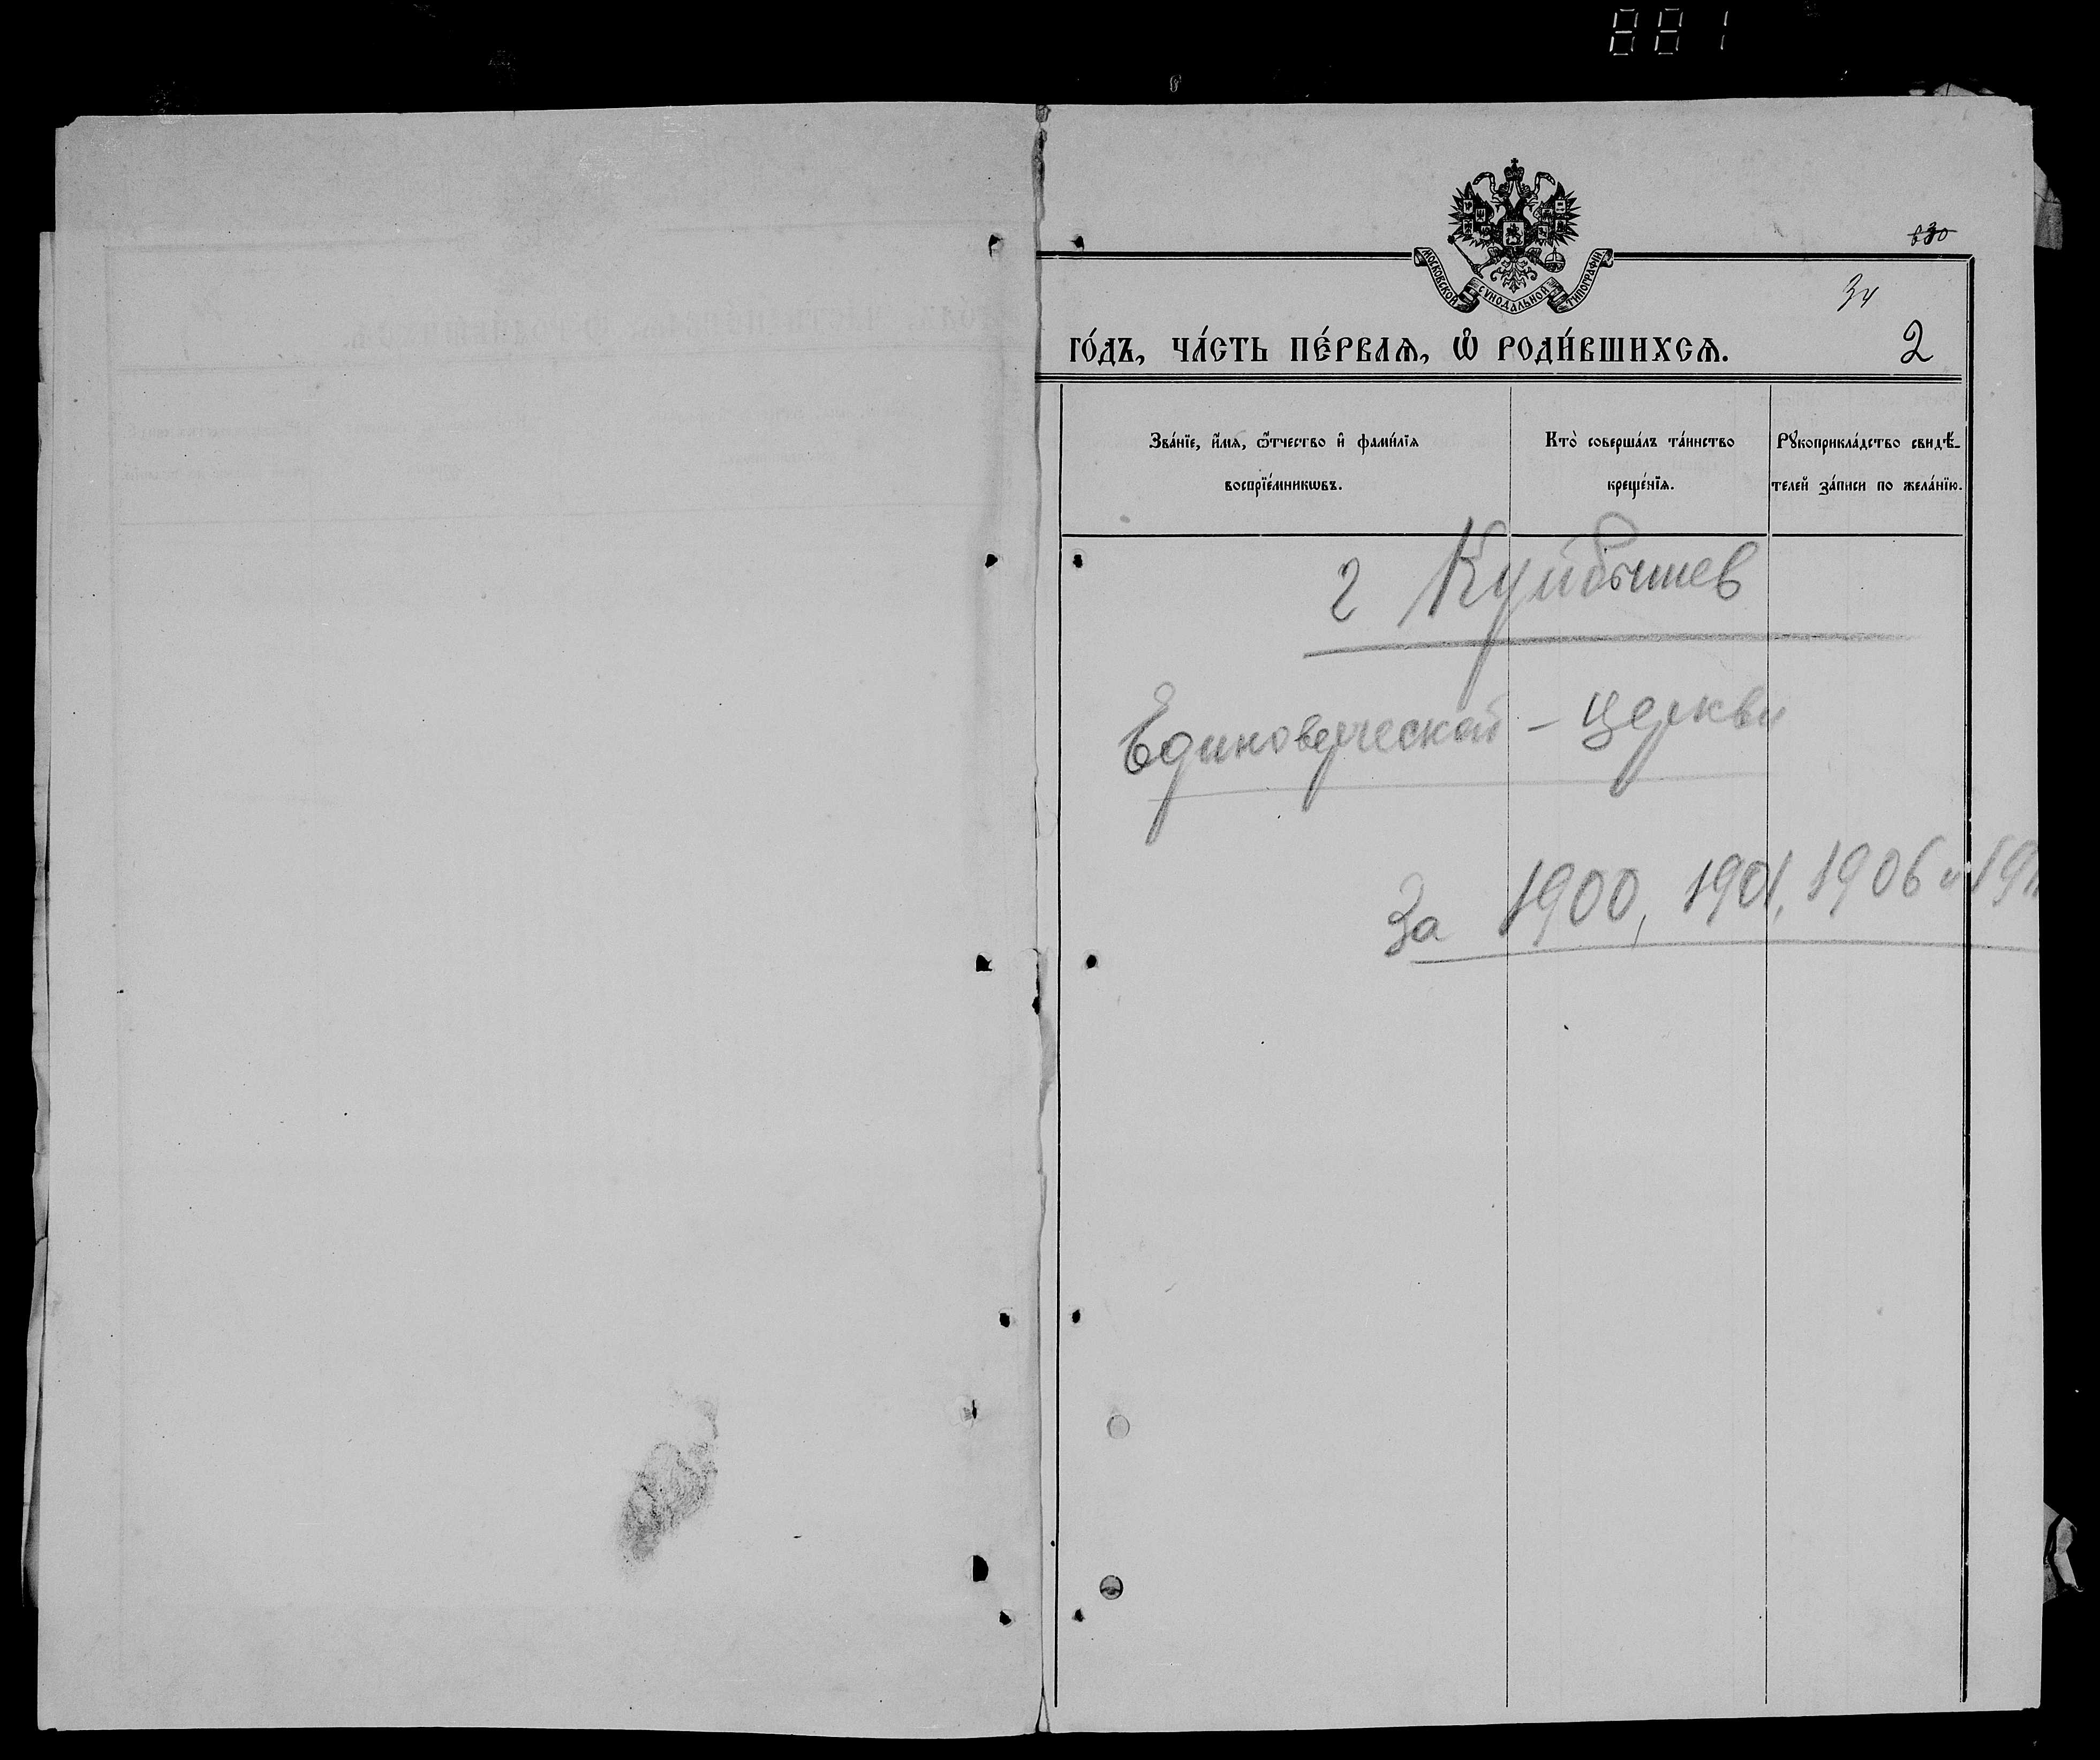 881
630
МОСКОВСКОЙ СѴНОДАЛЬНОЙ ТИПОГРАФІИ
34
ГО́ДЪ, ЧА́СТЬ ПЕ́РВАѦ, Ѽ РОДИ́ВШИХСѦ.
2
Зва́нїе, и҆́мѧ, ѻ҆́тчество и҆ фами́лїѧ
воспрїе́мникѡвъ.
Кто̀ соверша́лъ та́инство
креще́нїѧ.
Рꙋкоприкла́дство свидѣ́-
телей за́писи по жела́нїю.
г Куйбышев
Единоверческой - церкви
За 1900, 1901, 1906 и